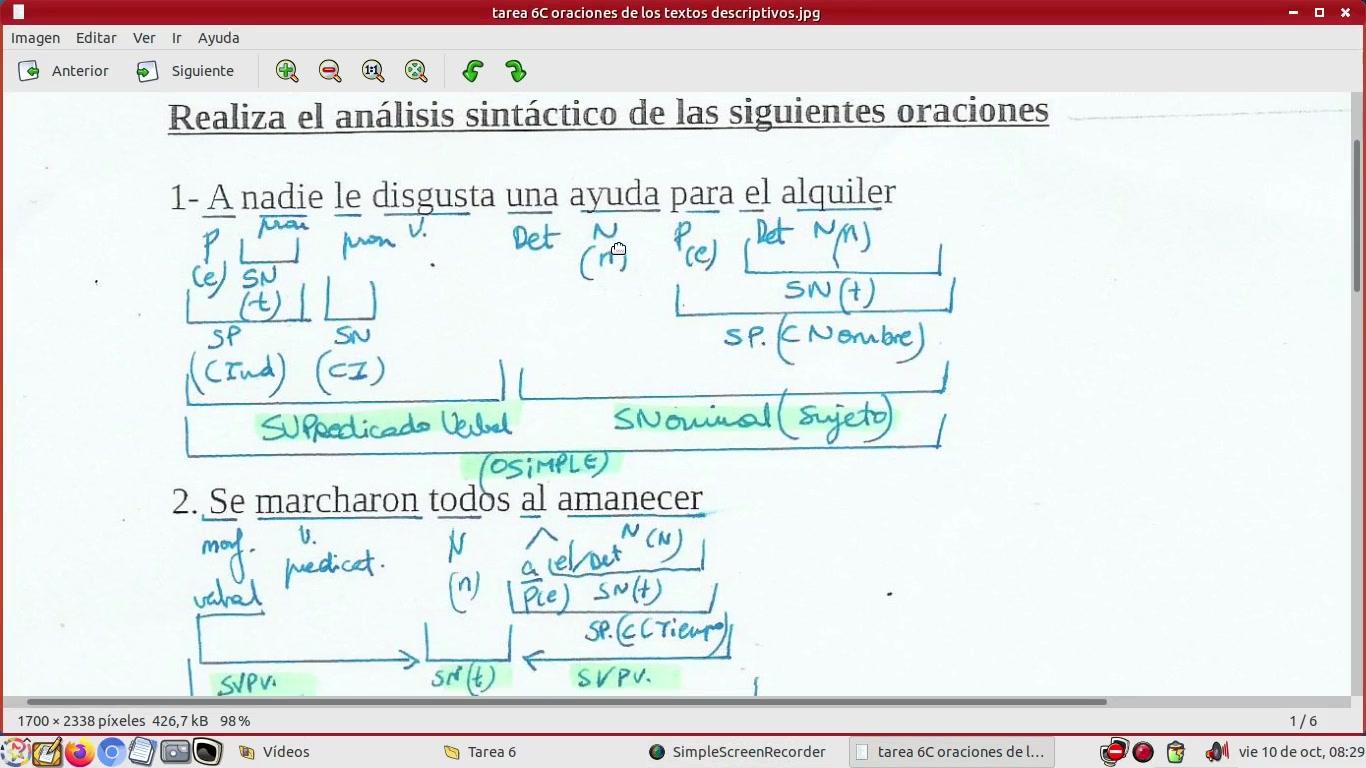 tarea 6C oraciones de los textos descriptivos.jpg
Imagen Editar Ver Ir Ayuda
Anterior Siguiente
Realiza el análisis sintáctico de las siguientes oraciones
1- A nadie le disgusta una ayuda para el alquiler
P pron pron V. Det N P Det N(n)
(e) SN (n) (e)
(t) SN(t)
SP SN SP. (CNombre)
(CInd) (CI)
SVPredicado Verbal SNominal (Sujeto)
(OSiMPLE)
2. Se marcharon todos al amanecer
morf. V. N N(N)
verbal predicat. (n) a (el/Det
P(e) SN(t)
SP.(CCTiempo)
SVPV. SN(t) SVPV.
1700 × 2338 píxeles 426,7 kB 98 % 1 / 6
Vídeos Tarea 6 SimpleScreenRecorder tarea 6C oraciones de l... vie 10 de oct, 08:29